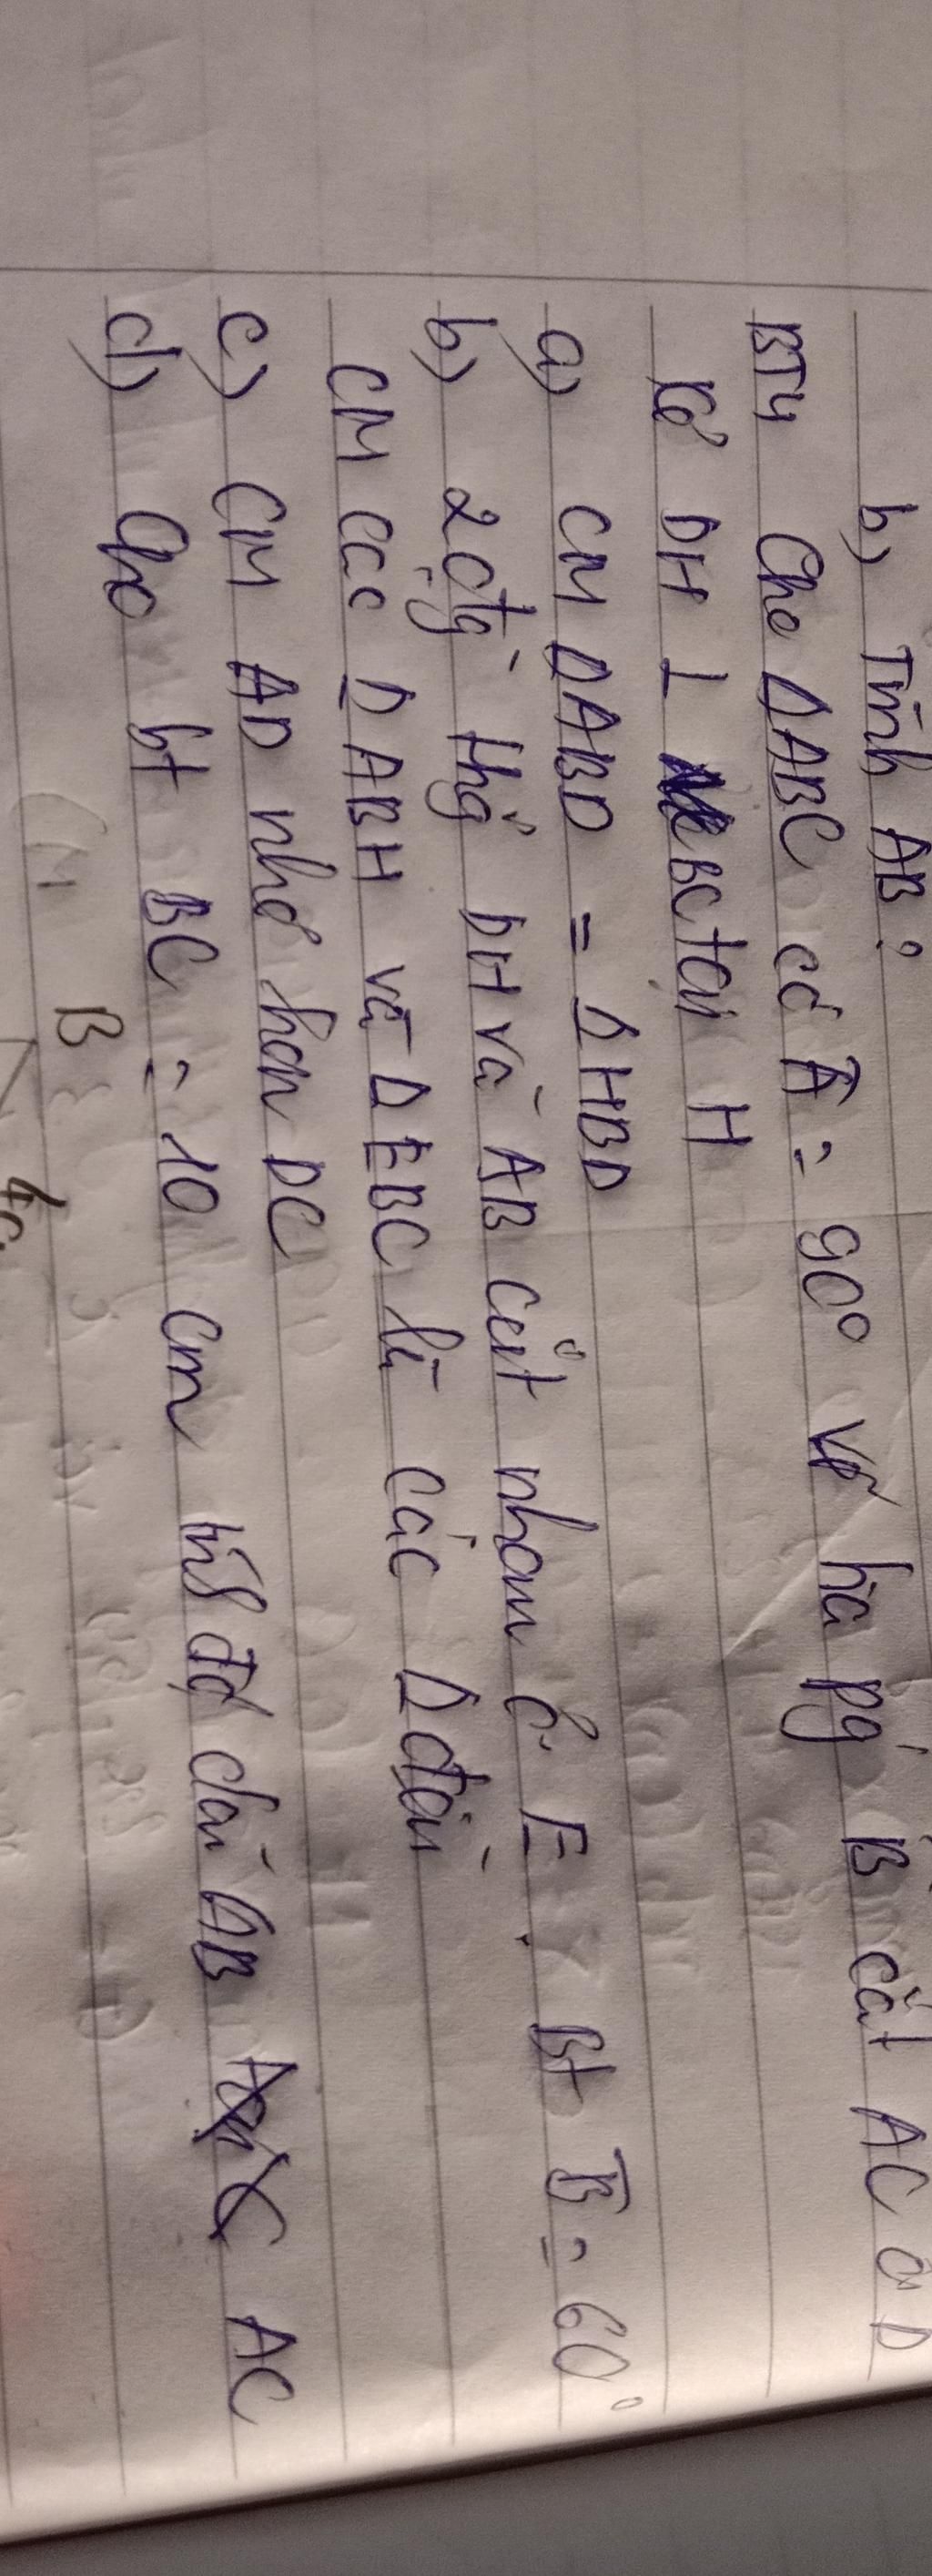 b) Tính AB?
BT4 Cho ΔABC có Â = 90° vẽ tia pg B cắt AC ở D
Kẻ DH ⊥ BC tại H
a) CM ΔABD = ΔHBD
b) 2 đtg thg DH và AB cắt nhau ở E. Bt B̂ = 60°
CM các ΔABH và ΔEBC là các Δ đều
c) CM AD nhỏ hơn DC
d) Cho bt BC = 10 cm tính độ dài AB AC
B